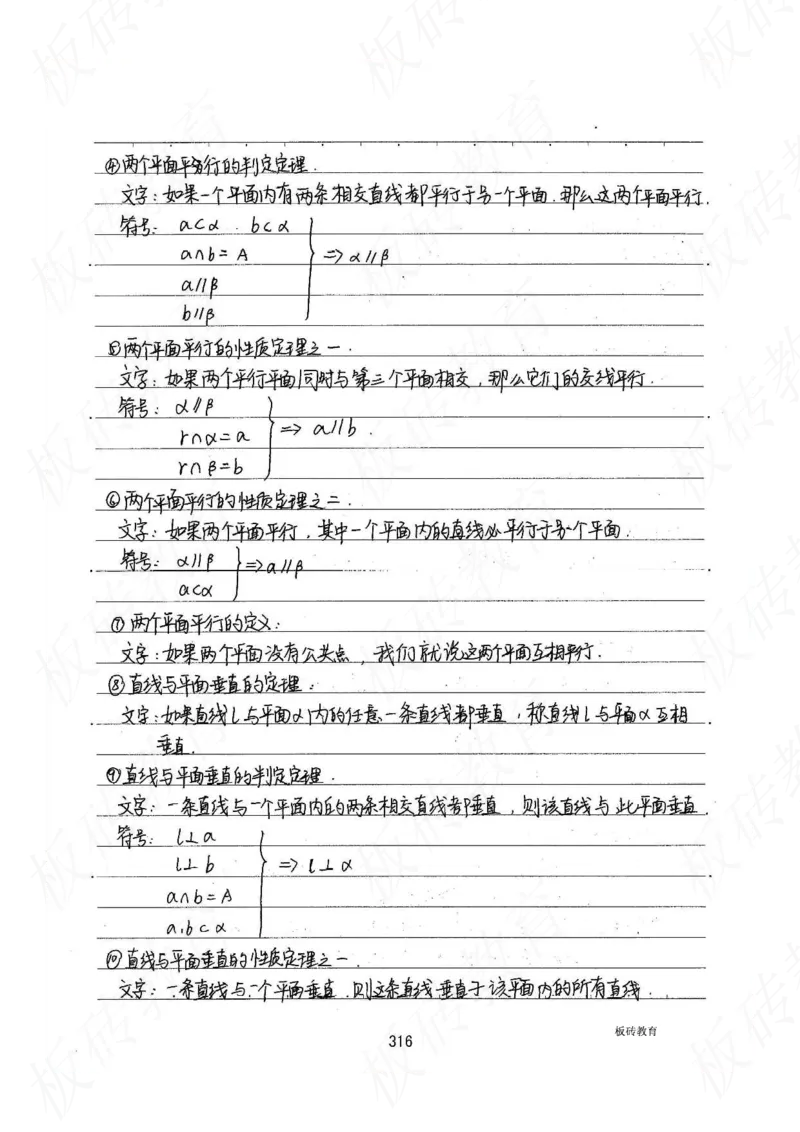 ④两个平面平行的判定定理.
文字:如果一个平面内有两条相交直线都平行于另一个平面.那么这两个平面平行.
符号: a⊂α . b⊂α
a∩b= A
⇒ α∥β
a∥β
b∥β
⑤两个平面平行的性质定理之一.
文字:如果两个平行平面同时与第三个平面相交,那么它们的交线平行.
符号: α∥β
r∩α=a
⇒ a∥b .
r∩β=b
⑥两个平面平行的性质定理之二.
文字:如果两个平面平行,其中一个平面内的直线必平行于另个平面.
符号: α∥β ⇒a∥β
a⊂α
⑦两个平面平行的定义:
文字:如果两个平面没有公共点,我们就说这两个平面互相平行.
⑧直线与平面垂直的定理:
文字:如果直线l与平面α内的任意一条直线都垂直,称直线l与平面α互相
垂直.
⑨直线与平面垂直的判定定理.
文字:一条直线与一个平面内的两条相交直线都垂直,则该直线与此平面垂直.
符号: l⊥a
l⊥b ⇒ l⊥α
a∩b=A
a,b⊂α
⑩直线与平面垂直的性质定理之一.
文字:一条直线与一个平面垂直.则这条直线垂直于该平面内的所有直线.
316
板砖教育